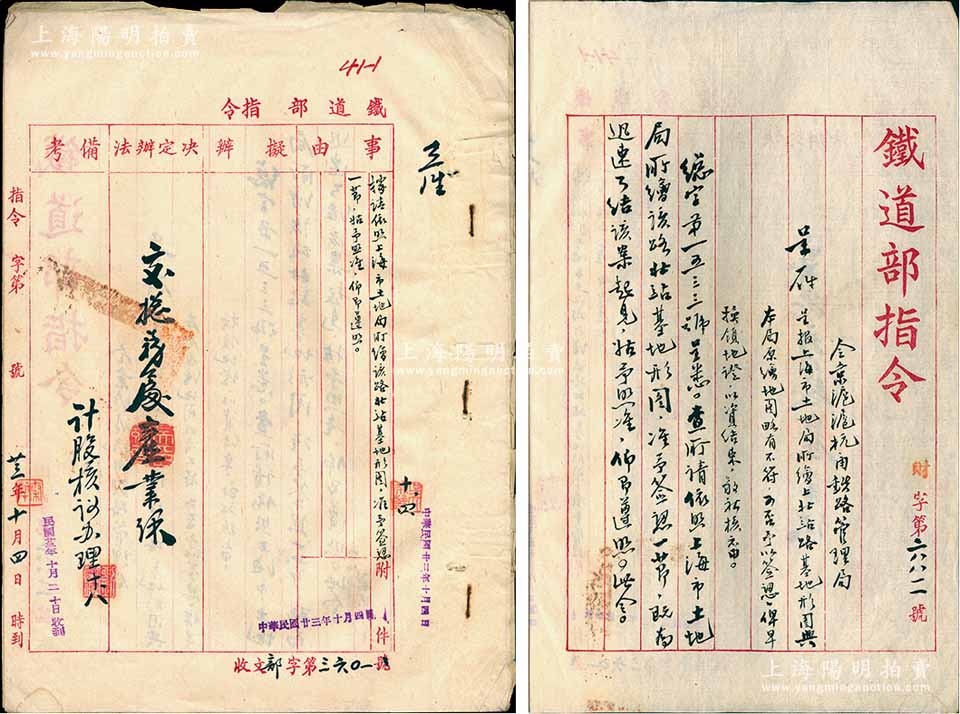 上海陽明拍賣
www.yangmingauction.com
41-1
鐵道部指令
事由
擬辦
決定辦法
備考
據請依照上海市土地局所繪該路北站基地形圖，准予簽認
一節，姑予照准，仰即遵照。
附
件
交總務處產業課
計股核議办理
十、四
中華民國廿三年十月四日
中華民國廿三年十月四日
收文部字第三六〇一號
指令 字第 號
廿三年十月四日 時到
民國廿三年十月二十日收到
上海陽明拍賣
www.yangmingauction.com
鐵道部指令
財字第六八八二號
令京滬滬杭甬鉄路管理局
呈一件 呈报上海市土地局所繪上北站路基地形圖與
本局原繪地圖略有不符可否予以簽認俾早
換領地證以資結束敬祈核示由。
總字第一五三三號呈悉。查所請依照上海市土地
局所繪該路北站基地形圖，准予簽認一節，既為
迅速了结該案起見，姑予照准，仰即遵照。此令。
上海陽明拍賣
www.yangmingauction.com